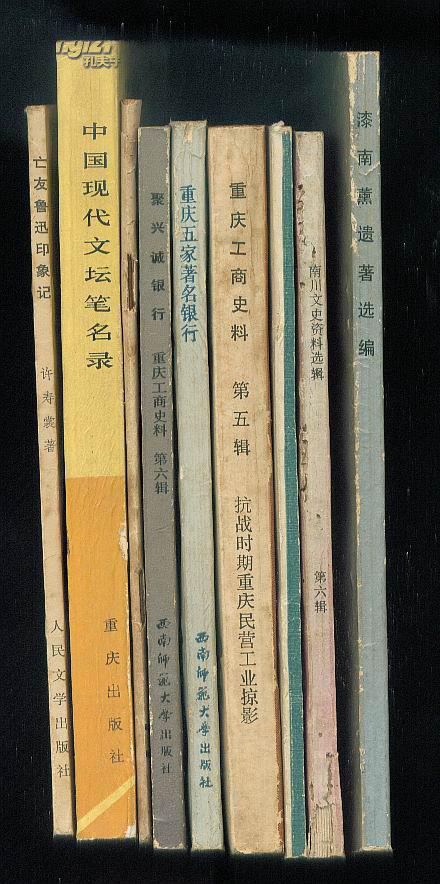 孔夫子
亡友鲁迅印象记
许寿裳著
人民文学出版社
中国现代文坛笔名录
重庆出版社
聚兴诚银行
重庆工商史料 第六辑
西南师范大学出版社
重庆五家著名银行
西南师范大学出版社
重庆工商史料 第五辑
抗战时期重庆民营工业掠影
南川文史资料选辑
第六辑
漆南薰遗著选编